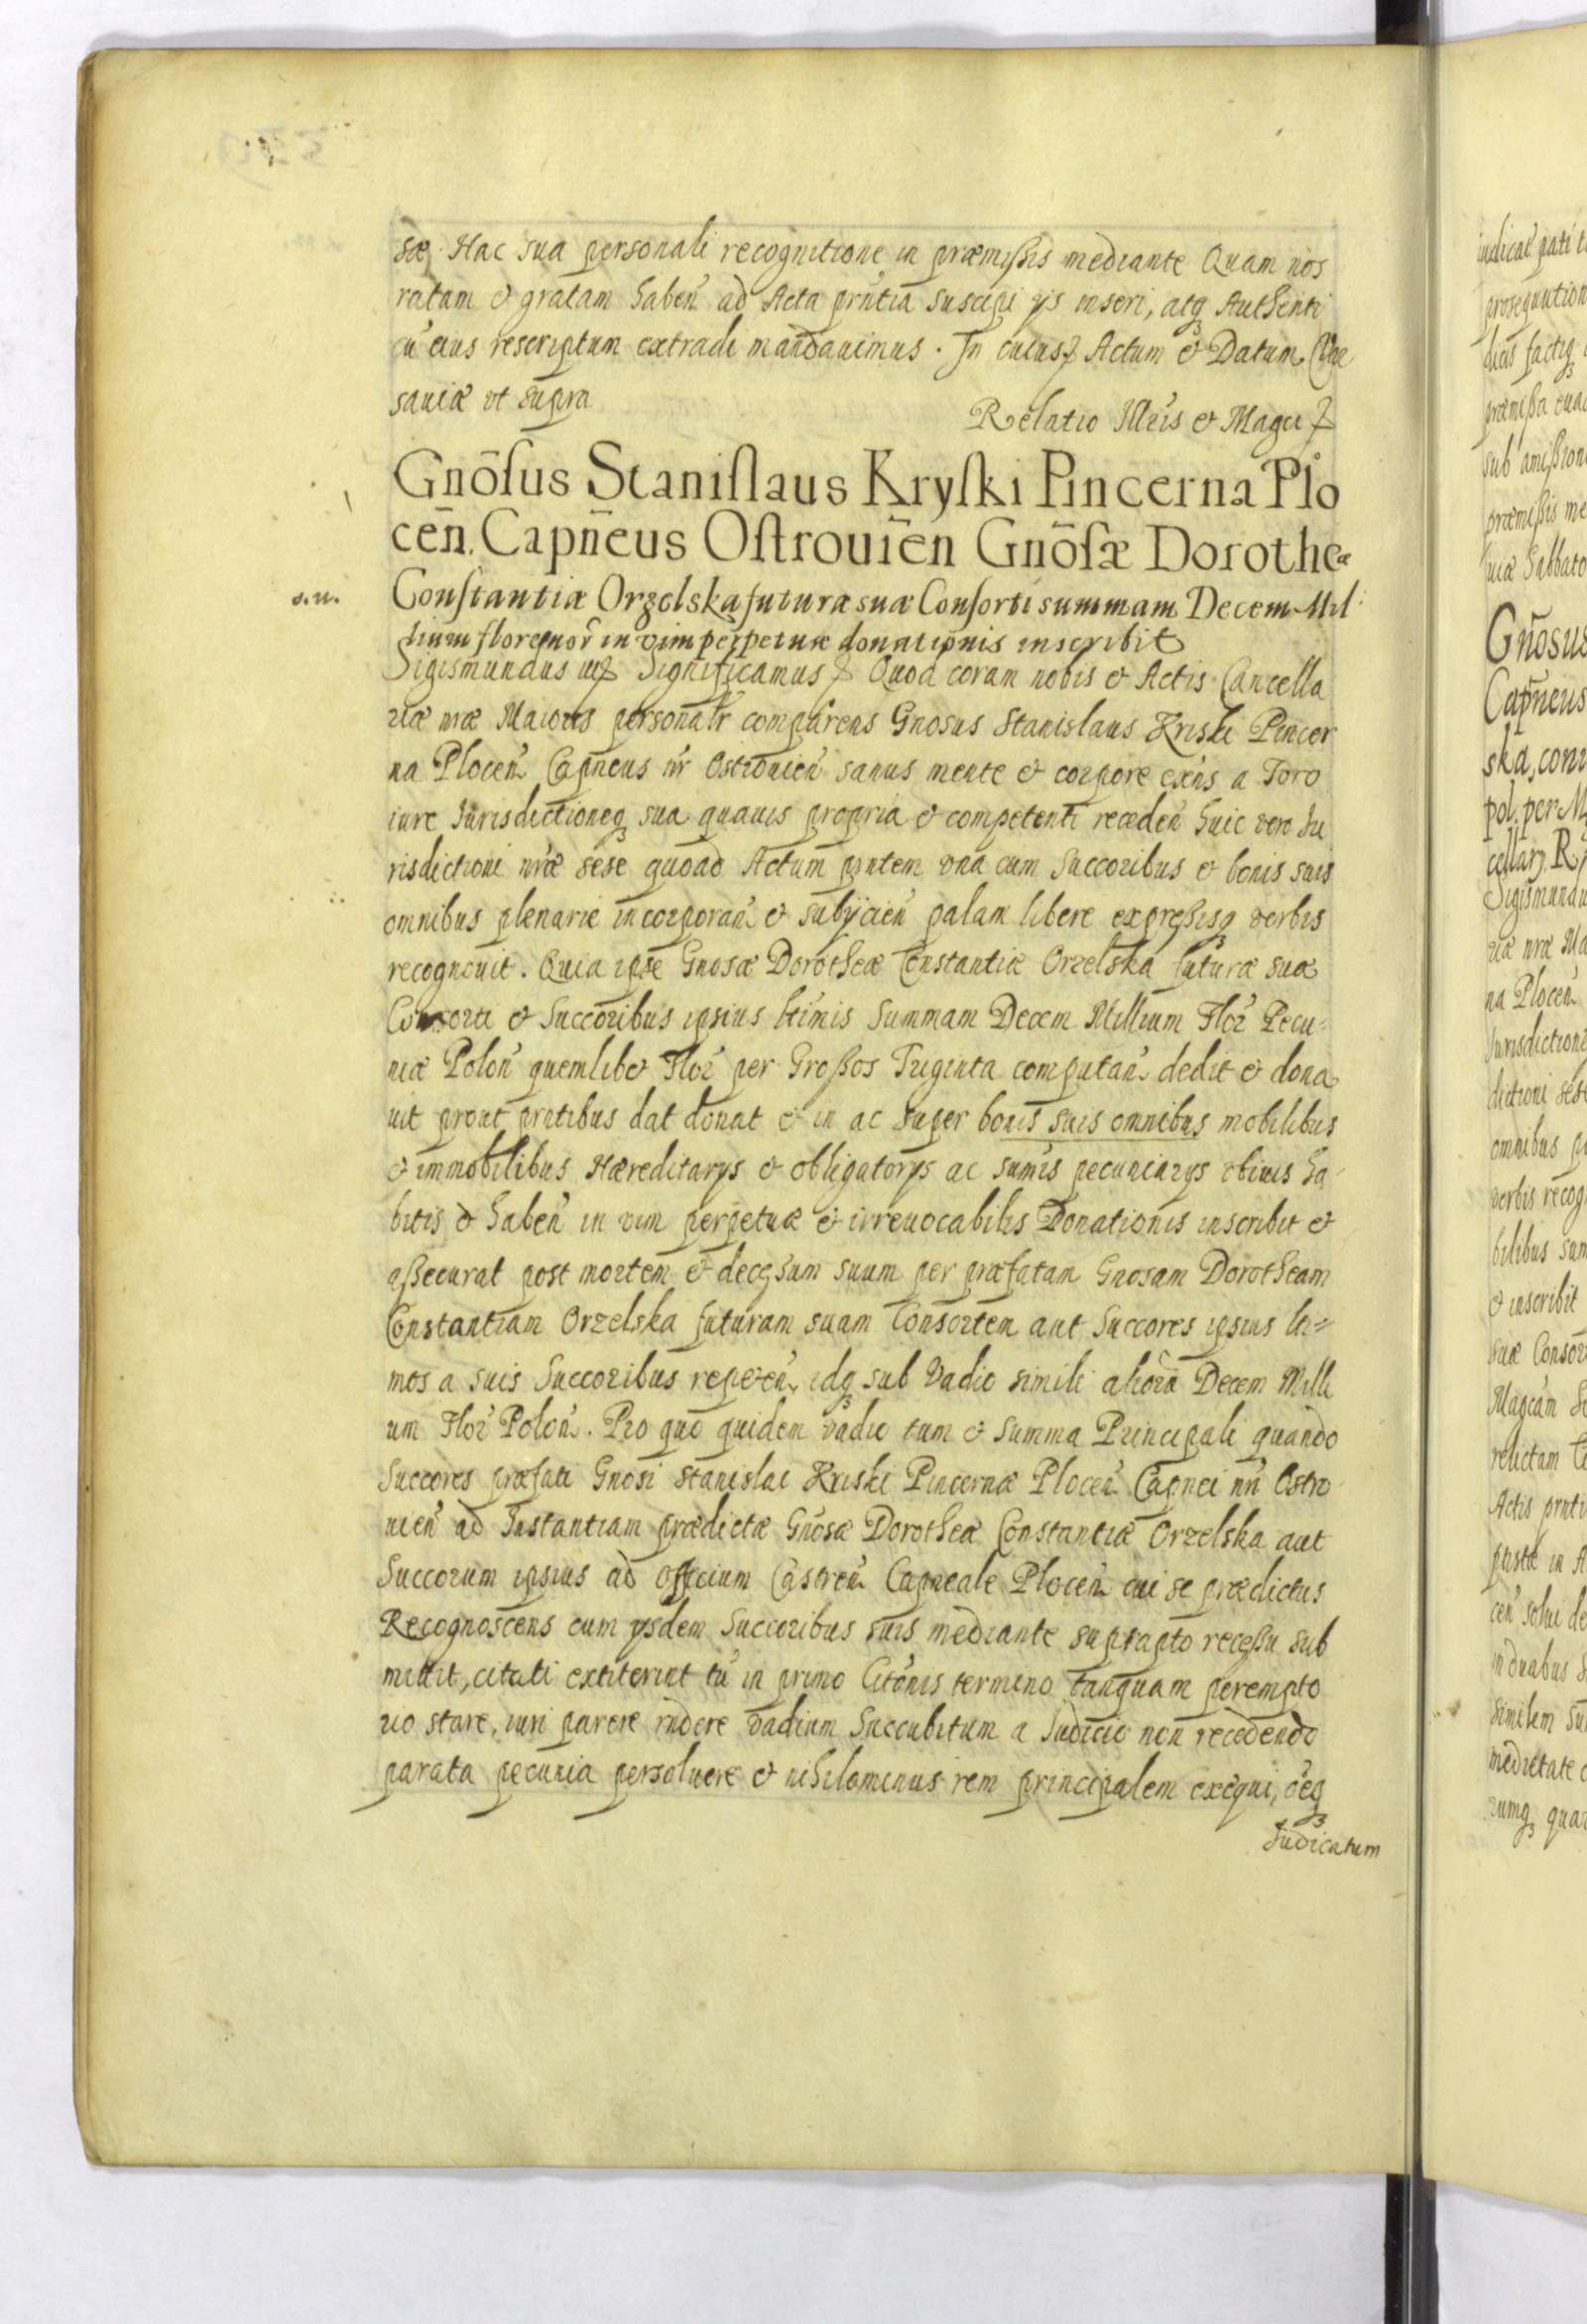 sæ. Hac sua personali recognitione in præmissis mediante Quam nos
ratam et gratam haben̄ ad Acta prn̄tia suscipi ijs inseri, atq̨ Authenti
cū eius rescriptum extradi mandauimus. In cuius Actum et Datum Var
sauiæ vt supra
Relatio Illr̄is et Magci
Gnōsus Stanislaus Kryski Pincerna Plo
cen̄. Capn̄eus Ostrouien̄ Gnōsæ Dorotheæ
Constantiæ Orzelska futuræ suæ Consorti summam Decem Mil
lium florenor̄ in vim perpetuæ donationis inscribit
Sigismundus Significamus Quod coram nobis et Actis Cancella
riæ nr̄æ Maioris personalr̄ comparens Gnosus Stanislaus Kriski Pincer
na Plocen̄ Capneus nr̄ Ostrouien̄ sanus mente et corpore exn̄s a Foro
iure Jurisdictioneq̨ sua quauis propria et competenti receden̄ huic vero Ju
risdictioni nr̄æ sese quoad Actum prn̄tem vna cum Succoribus et bonis suis
omnibus plenarie incorporan̄ et subijcien̄ palam libere expressisq̨ verbis
recognouit. Quia ipse Gnosæ Dorotheæ Constantiæ Orzelska futuræ suæ
Consorti et Succoribus ipsius ltīmis Summam Decem Millium Flor̄ Pecu=
niæ Polon̄ quemlibet Flor̄ per Grossos Triginta computan̄ dedit et dona
uit prout prn̄tibus dat donat et in ac super bonis suis omnibus mobilibus
et immobilibus Hæreditarys et obligatorys ac sum̄is pecuniarys vbiuis ha
bitis et haben̄ in vim perpetuæ et irreuocabilis Donationis inscribit et
assecurat post mortem et decessum suum per præfatam Gnosam Dorotheam
Constantiam Orzelska futuram suam Consortem aut Succores ipsius lti=
mos a suis Succoribus repeten̄, idq̨ sub Vadio simili aliorū Decem Milli
um Flor̄ Polon̄. Pro quo quidem vadio tum et Summa Principali quando
Succores præfati Gnosi Stanislai Kriski Pincernæ Plocen̄ Capnei nr̄i Ostro
uien̄ ad Instantiam prædictæ Gnōsæ Dorotheæ Constantiæ Orzelska aut
Succorum ipsius ad Officium Castren̄ Capneale Plocen̄ cui se prædictus
Recognoscens cum ysdem Succoribus suis mediante suprapto recessu sub
mittit, citati extiterint tū in primo Citōnis termino tanquam perempto
rio stare, iuri parere rn̄dere vadium Succubitum a Judicio non recedendo
parata pecunia persoluere et nihilominus rem principalem exequi, oēq̨
Judicatum